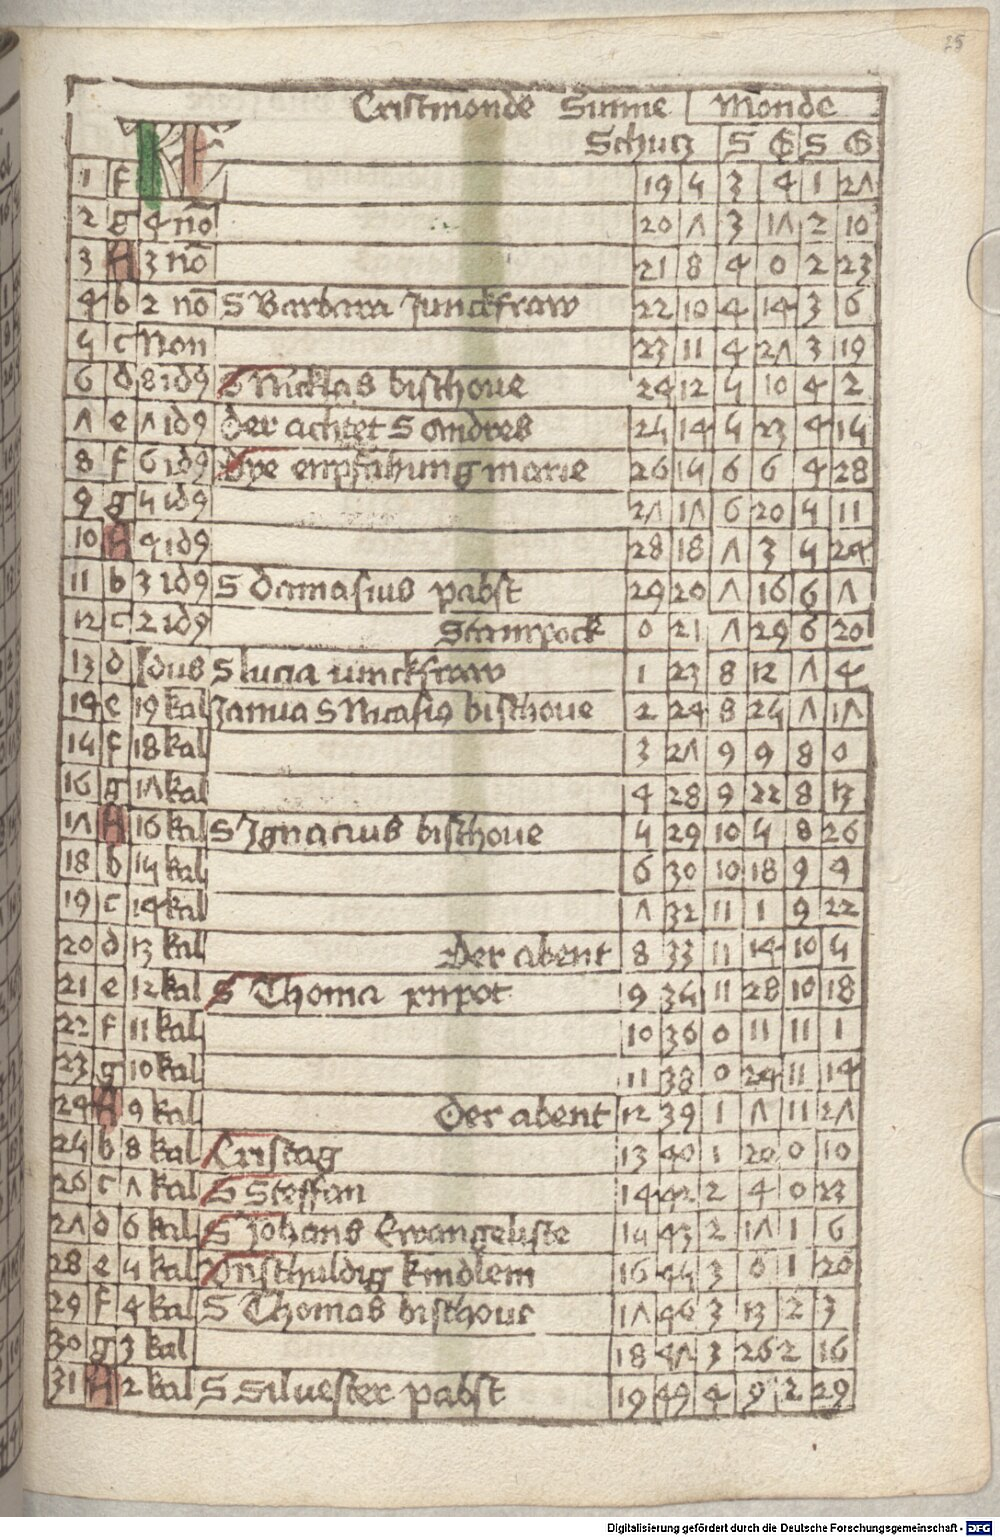 25
Cristmonde Sunne Monde
KL Schucz S G S G
1 f 19 5 3 4 1 27
2 g 4 nō 20 7 3 17 2 10
3 A 3 nō 21 8 4 0 2 23
4 b 2 nō S Barbara Junckfraw 22 10 4 14 3 6
5 c Non 23 11 4 27 3 19
6 d 8 idꝰ S Nicklas bischoue 24 12 5 10 4 2
7 e 7 idꝰ Der achtet S Andres 25 14 5 23 4 15
8 f 6 idꝰ Dye enpfahung marie 26 15 6 6 4 28
9 g 5 idꝰ 27 17 6 20 5 11
10 A 4 idꝰ 28 18 7 3 5 24
11 b 3 idꝰ S Damasius pabst 29 20 7 16 6 7
12 c 2 idꝰ Stainpock 0 21 7 29 6 20
13 d Idus S lucia iunckfraw 1 23 8 12 7 4
14 e 19 kal Janua S Nicasiꝰ bischoue 2 24 8 25 7 17
15 f 18 kal 3 27 9 9 8 0
16 g 17 kal 4 28 9 22 8 13
17 A 16 kal S Ignacius bischoue 5 29 10 5 8 26
18 b 15 kal 6 30 10 18 9 9
19 c 14 kal 7 32 11 1 9 22
20 d 13 kal Der abent 8 33 11 14 10 5
21 e 12 kal S Thoma 9 35 11 28 10 18
22 f 11 kal 10 36 0 11 11 1
23 g 10 kal 11 38 0 24 11 14
24 A 9 kal Der abent 12 39 1 7 11 27
25 b 8 kal Cristag 13 40 1 20 0 10
26 c 7 kal S Steffan 14 42 2 4 0 23
27 d 6 kal S Johans Ewangeliste 15 43 2 17 1 6
28 e 5 kal Vnschuldig kindlein 16 45 3 0 1 20
29 f 4 kal S Thomas bischoue 17 46 3 13 2 3
30 g 3 kal 18 47 3 26 2 16
31 A 2 kal S Siluester pabst 19 49 4 9 2 29
Digitalisierung gefördert durch die Deutsche Forschungsgemeinschaft - DFG